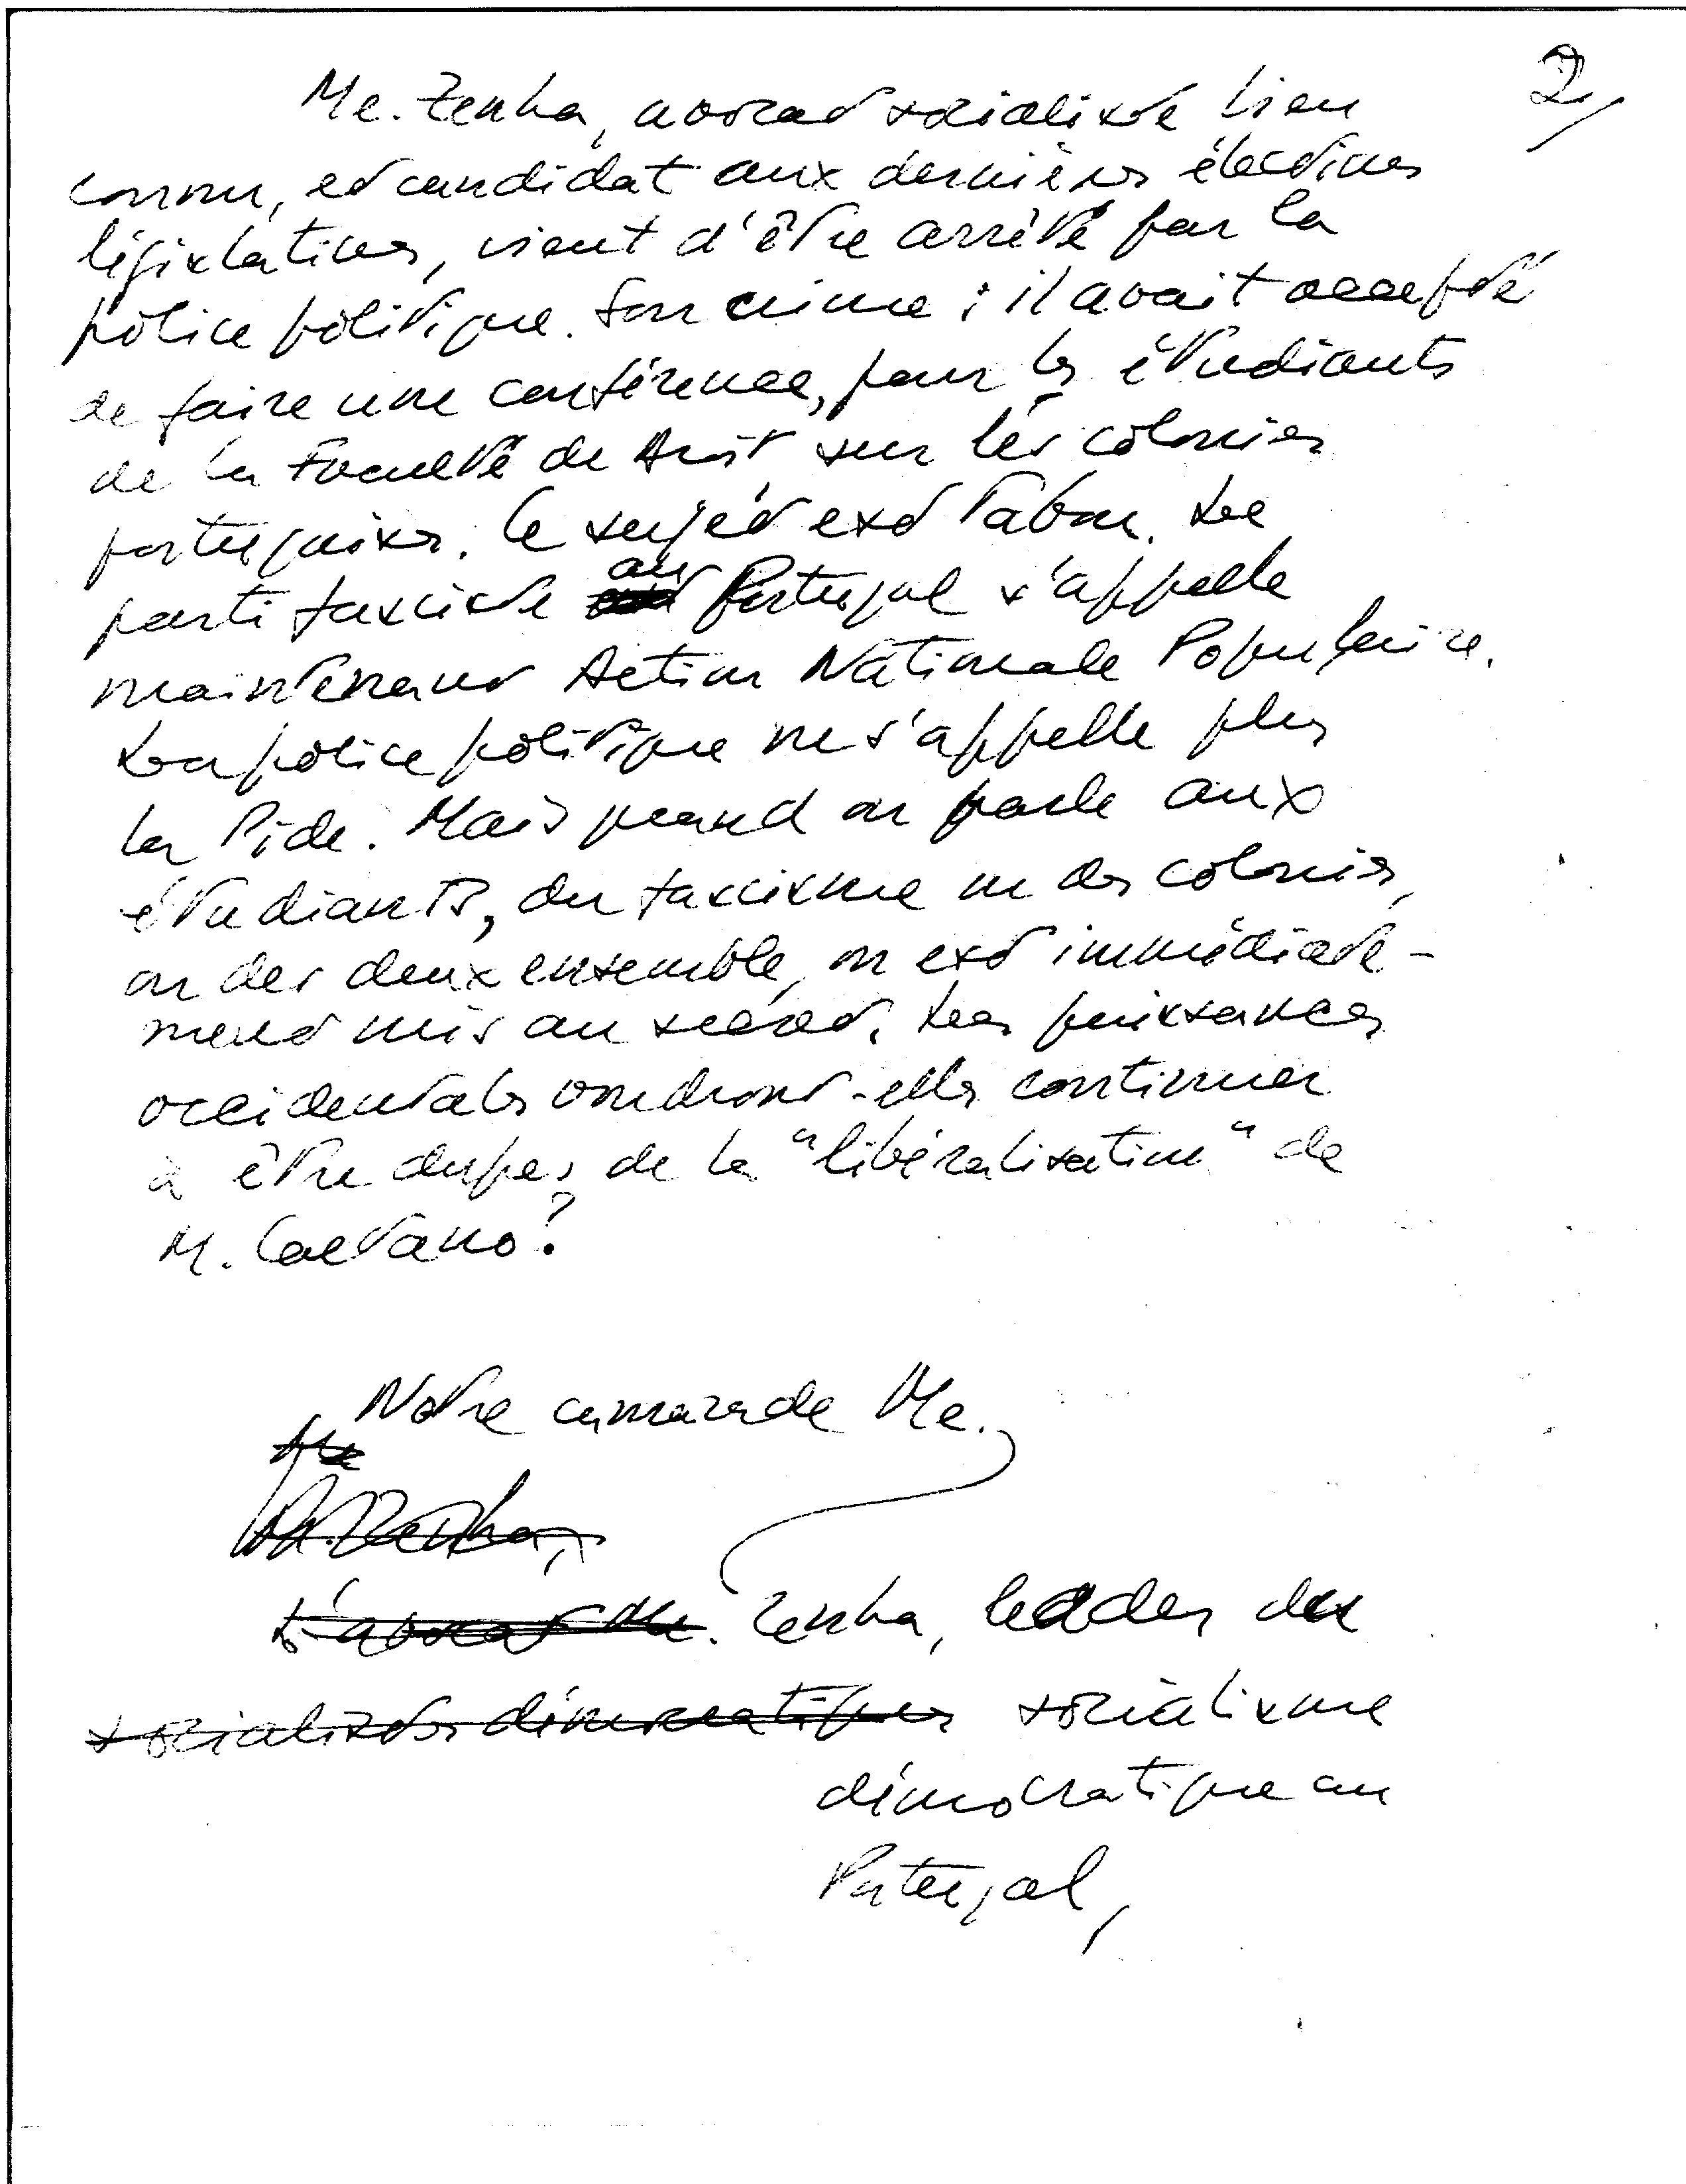 2/
Me. Zenha, avocat socialiste bien
connu, et candidat aux dernières élections
législatives, vient d'être arrêté par la
police politique. Son crime : il avait accepté
de faire une conférence, pour les étudiants
de la Faculté de Droit sur les colonies
portugaises. Le sujet est tabou. Le
parti fasciste au Portugal s'appelle
maintenant Action Nationale Populaire.
La police politique ne s'appelle plus
la Pide. Mais quand on parle aux
étudiants, du fascisme ou des colonies,
ou des deux ensemble, on est immédiate-
ment mis au secret. Les puissances
occidentales voudront-elles continuer
à être dupes de la "libéralisation" de
M. Caetano?
Notre camarade Me.
Me
M. Zenha,
L'avocat Me. Zenha, leader du
socialistes démocratiques socialisme
démocratique au
Portugal,